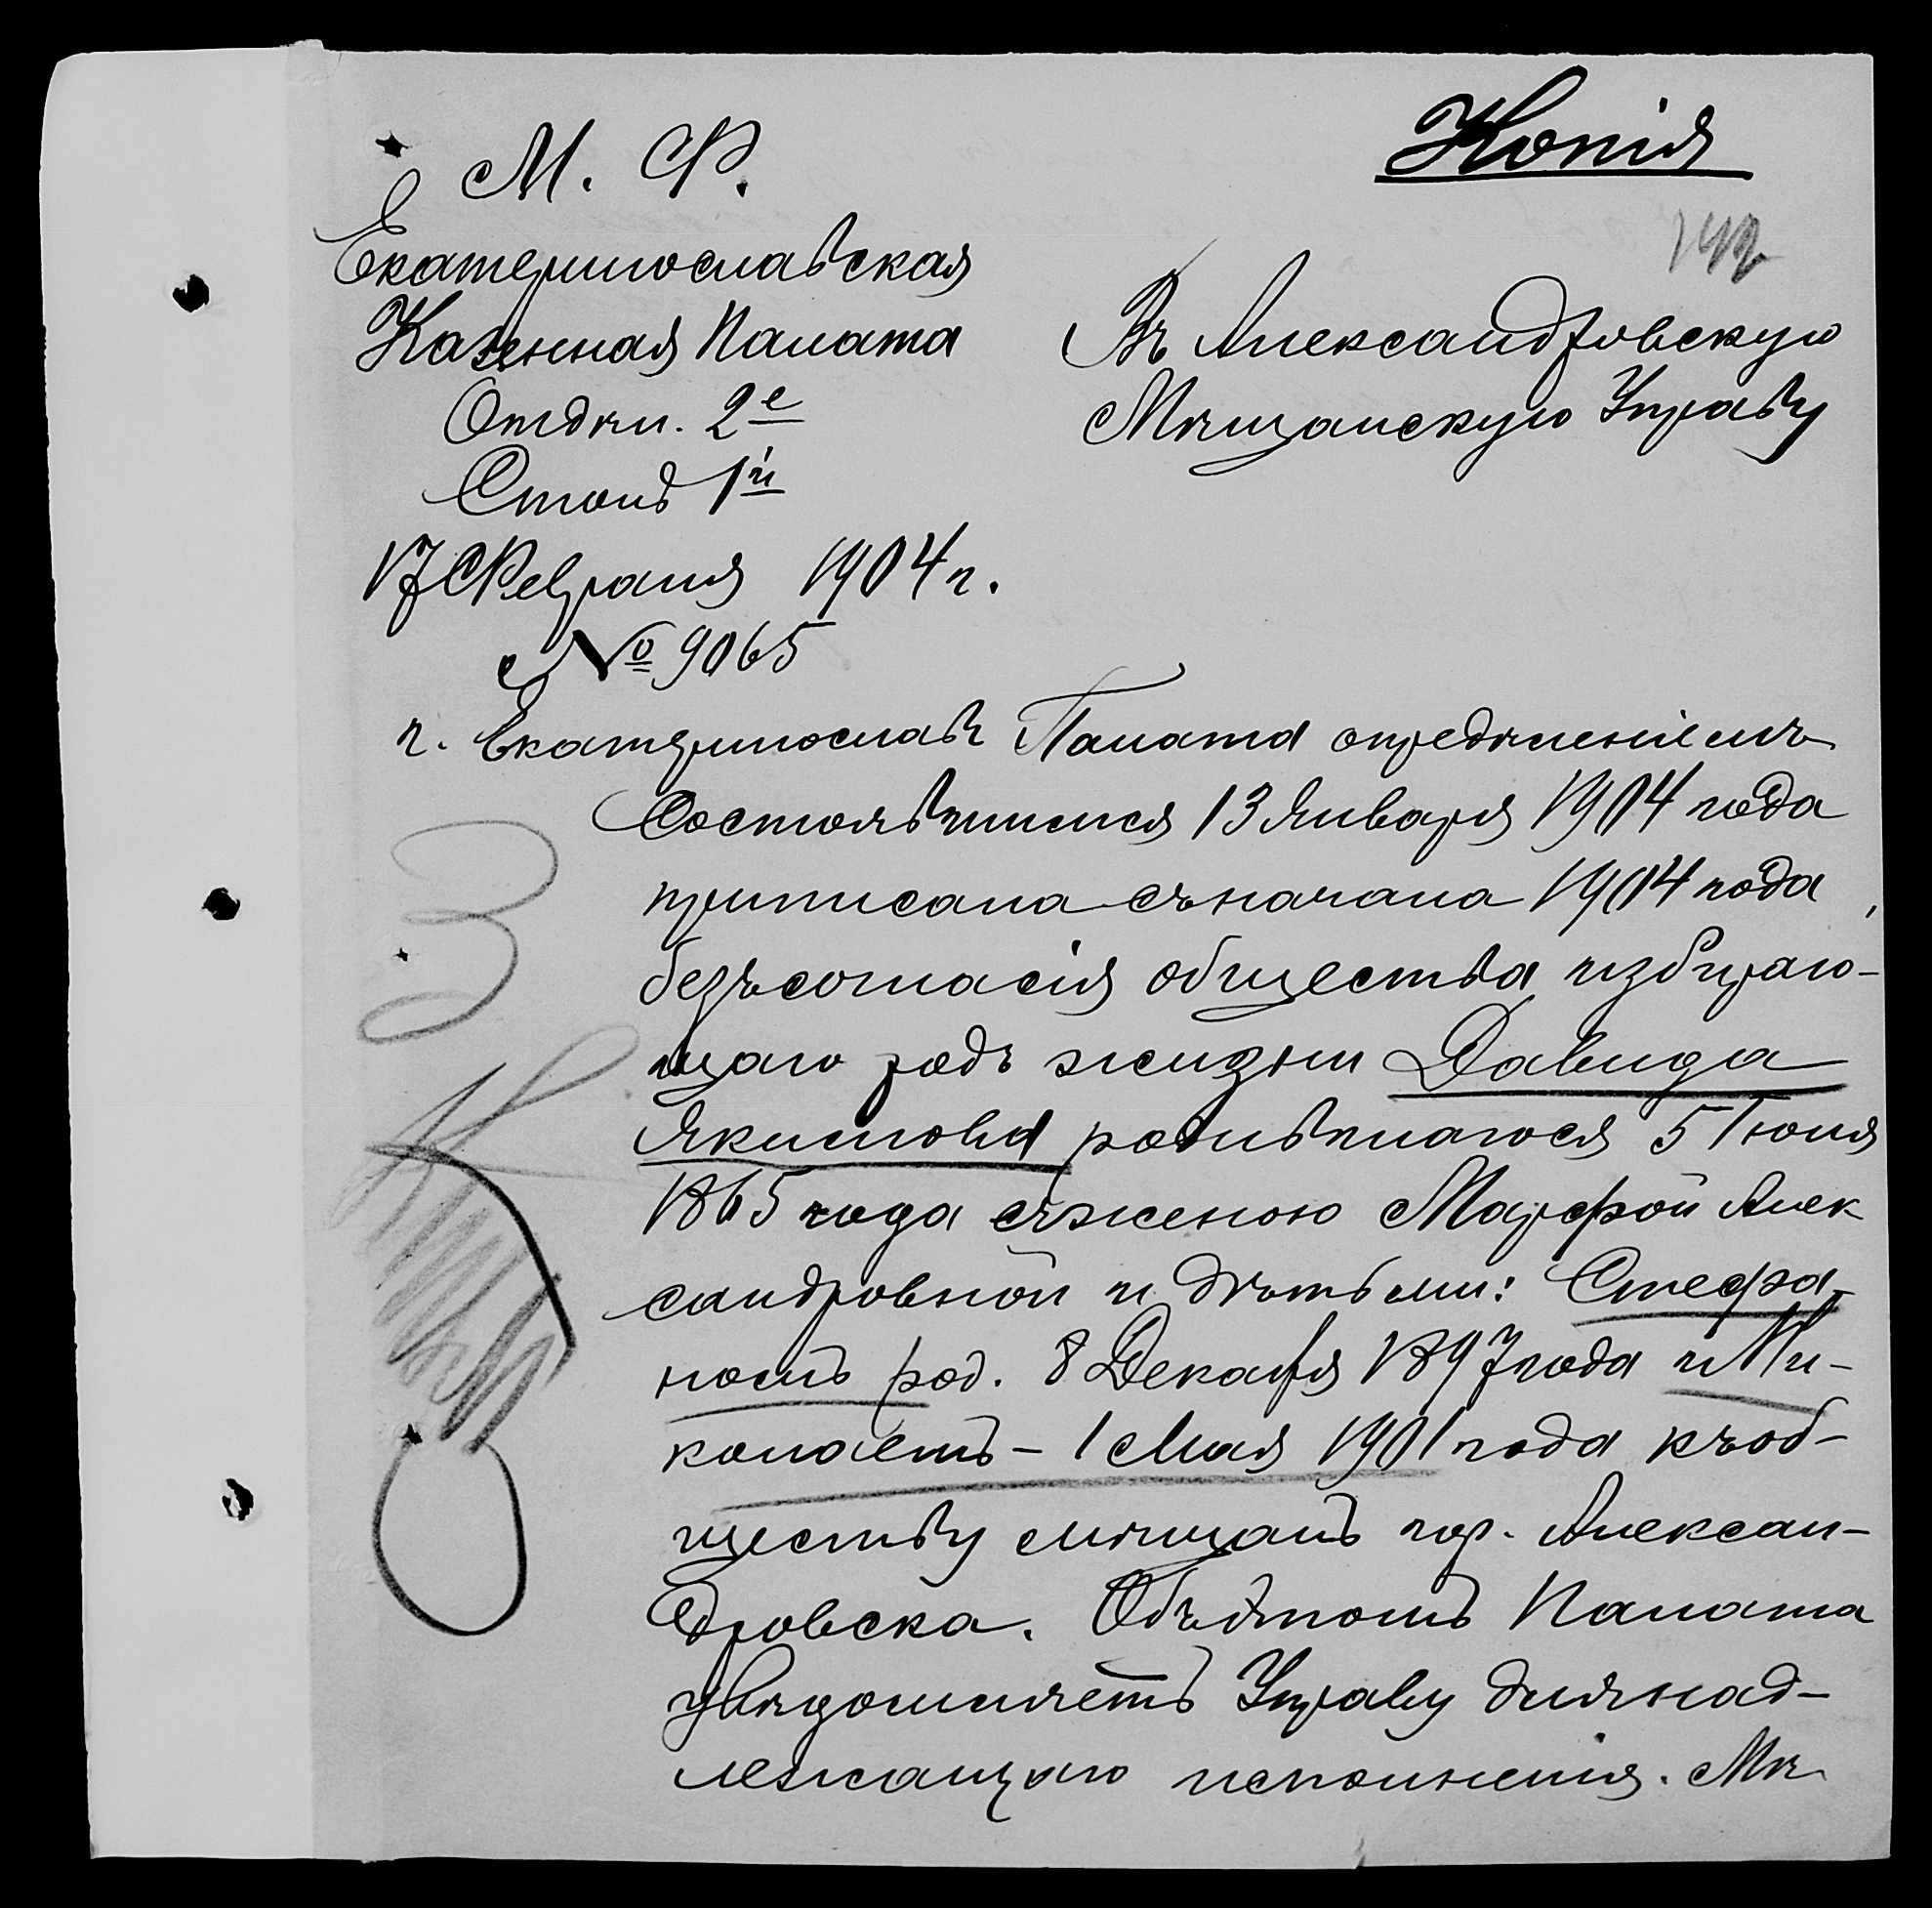 Копія
М. Ф.
Екатеринославская
Казенная Палата
Отдѣл. 2е
Столъ 1й
17 Февраля 1904 г.
№ 9065
г. Екатеринославъ
Въ Александровскую
Мѣщанскую Управу
Палата опредѣленіемъ
состоявшимся 13 Января 1904 года
приписала съ начала 1904 года,
безъ согласія общества избираю-
щаго родъ жизни Давида
Якимова родившагося 5 Іюня
1865 года съ женою Марфой Алек
сандровной и дѣтьми: Стефа-
номъ род. 8 Декабря 1897 года и Ни-
колаемъ - 1 Мая 1901 года къ об-
ществу мѣщанъ гор. Алексан-
дровска. Объ этомъ Палата
увѣдомляетъ Управу для над-
лежащаго исполненія. Мѣ